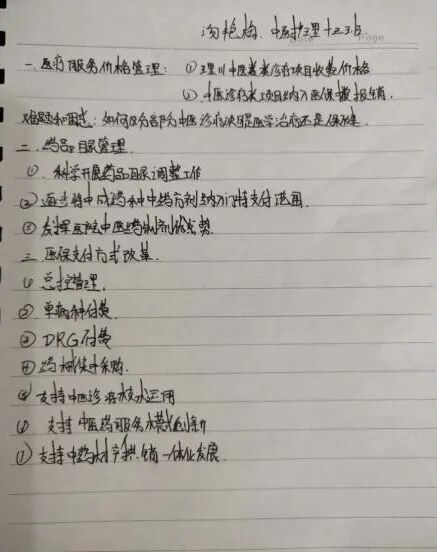 中医护理十二3班
Page
一. 医疗服务价格管理: ①理川中医类诊疗项目收费价格
② 中医诊疗类项目纳入医保报销.
难题和困惑: 如何区分部分中医诊疗项目是医学治疗还是保健.
二. 药品目录管理
①. 科学开展药品目录调整工作
②逐步将中成药和中药方剂纳入门特支付范围.
③发挥医院中医药制剂优势.
三 医保支付方式改革.
① 总控管理.
② 单病种付费.
③ DRG付费
④药械集中采购.
⑤支持中医诊疗技术运用
⑥ 支持中医药服务模式创新
⑦支持中药材产供.销一体化发展.